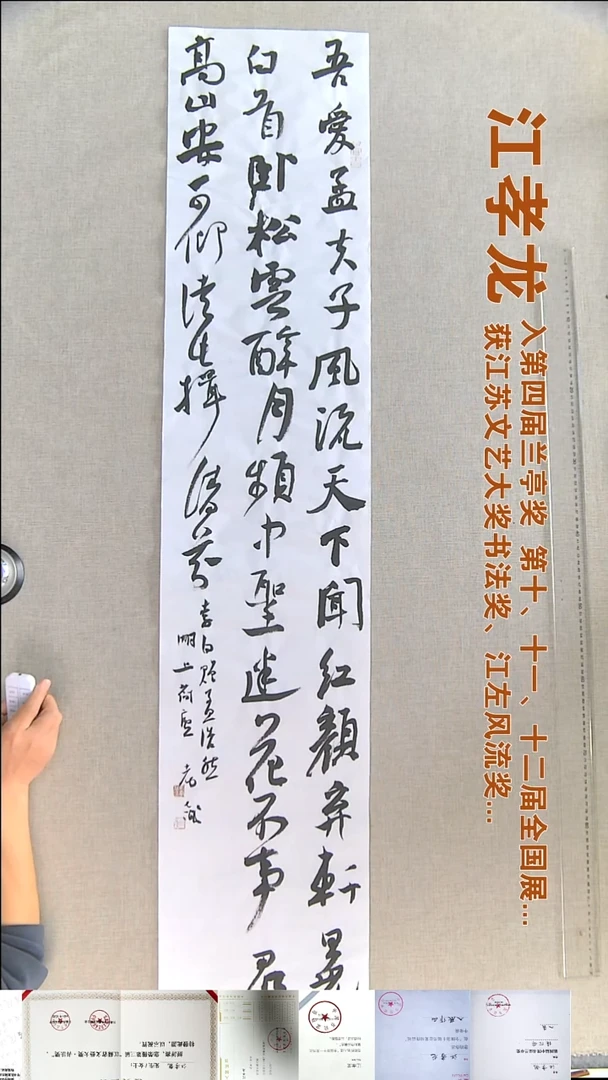 江孝龙
入第四届兰亭奖 第十、十一、十二届全国展...
获江苏文艺大奖书法奖、江左风流奖...
吾愛孟夫子風流天下聞紅顏弃軒冕
白首卧松雲醉月頻中聖迷花不事君
高山安可仰徒此揖清芬
李白贈孟浩然